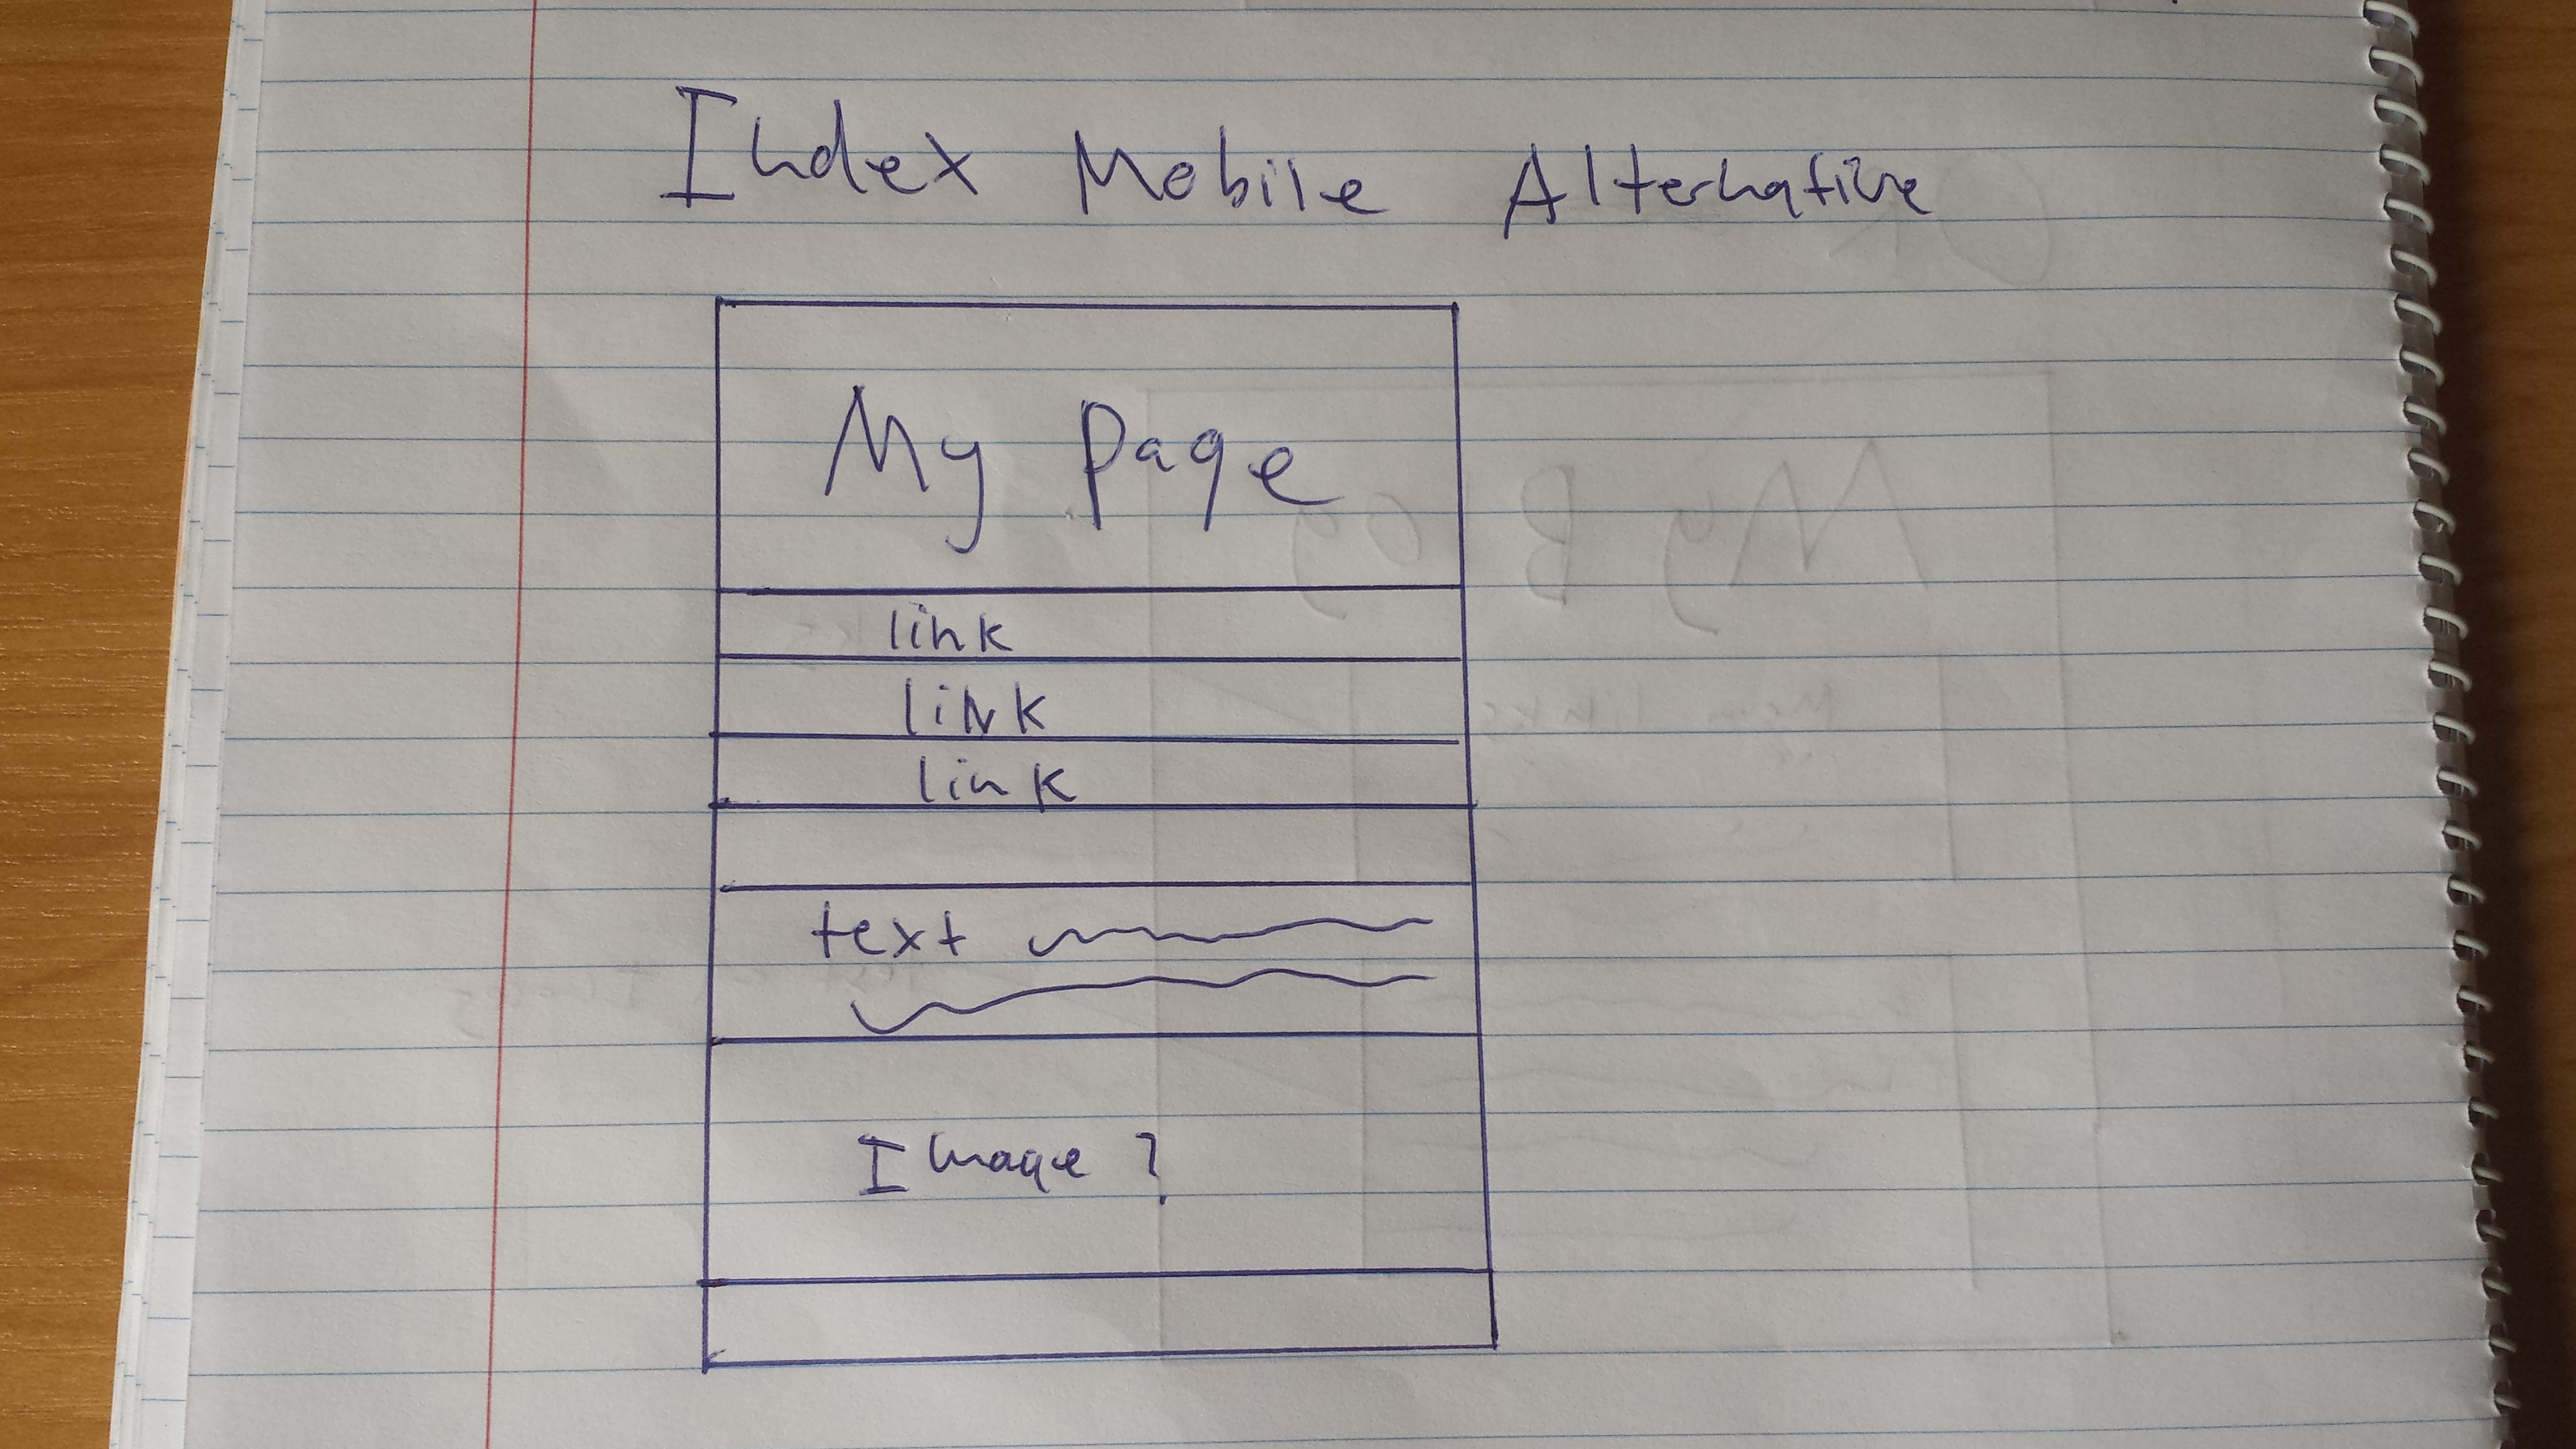 Index Mobile Alternative
My page
link
liNk
link
text
Image ?